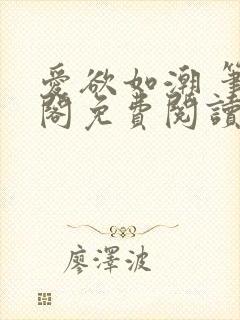 愛欲如潮 筆
閣免費閱讀
廖澤波